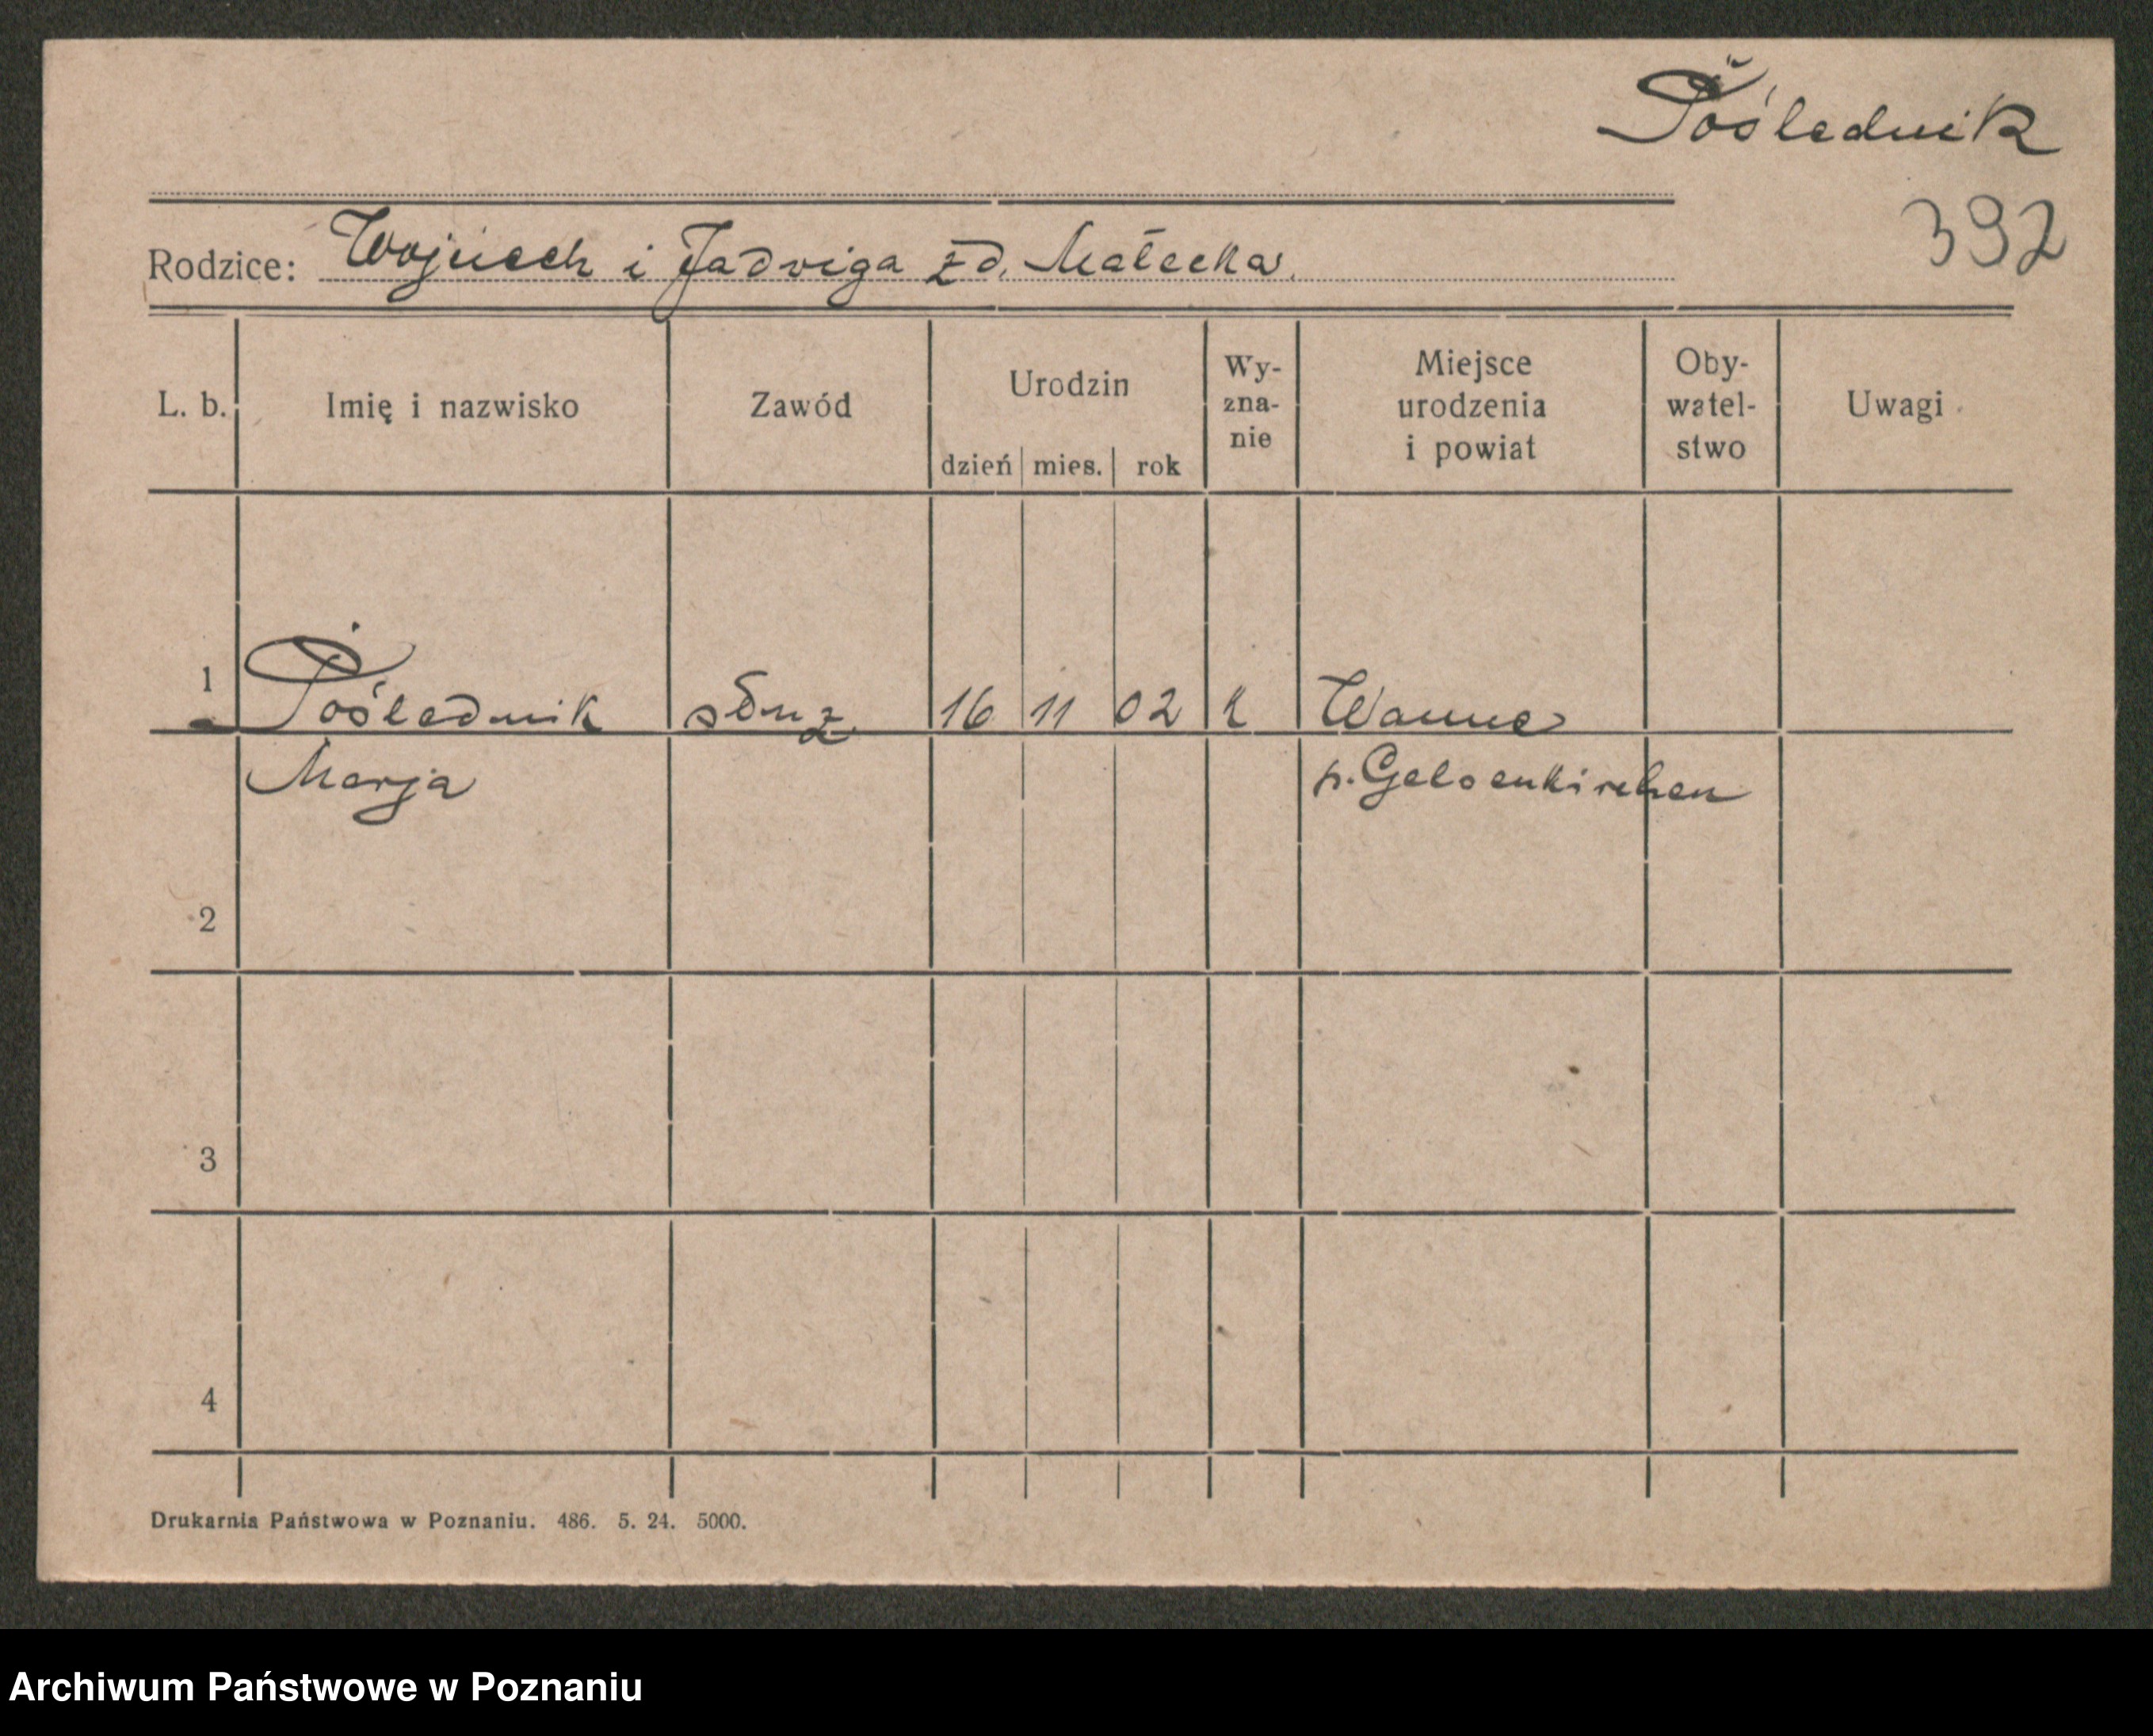 Poślednik
392
Rodzice: Wojciech i Jadwiga zd. Małecka.
L. b. Imię i nazwisko Zawód Urodzin dzień mies. rok Wy-zna-nie Miejsce urodzenia i powiat Oby-watel-stwo Uwagi
1 Poślednik służ. 16 11 02 k Wanne
Marja p. Gelsenkirchen
2
3
4
Drukarnia Państwowa w Poznaniu. 486. 5. 24. 5000.
Archiwum Państwowe w Poznaniu